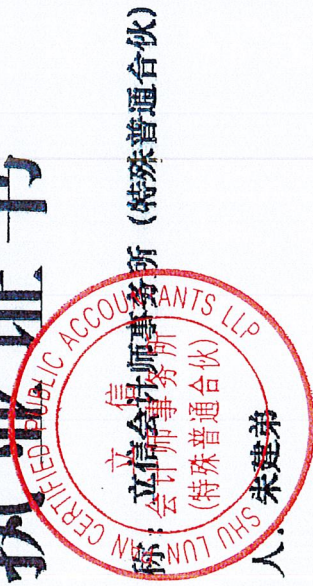 执业证书
称：立信会计师事务所（特殊普通合伙）
人：朱建弟
SHU LUN PAN CERTIFIED PUBLIC ACCOUNTANTS LLP
立信
会计师事务所
(特殊普通合伙)